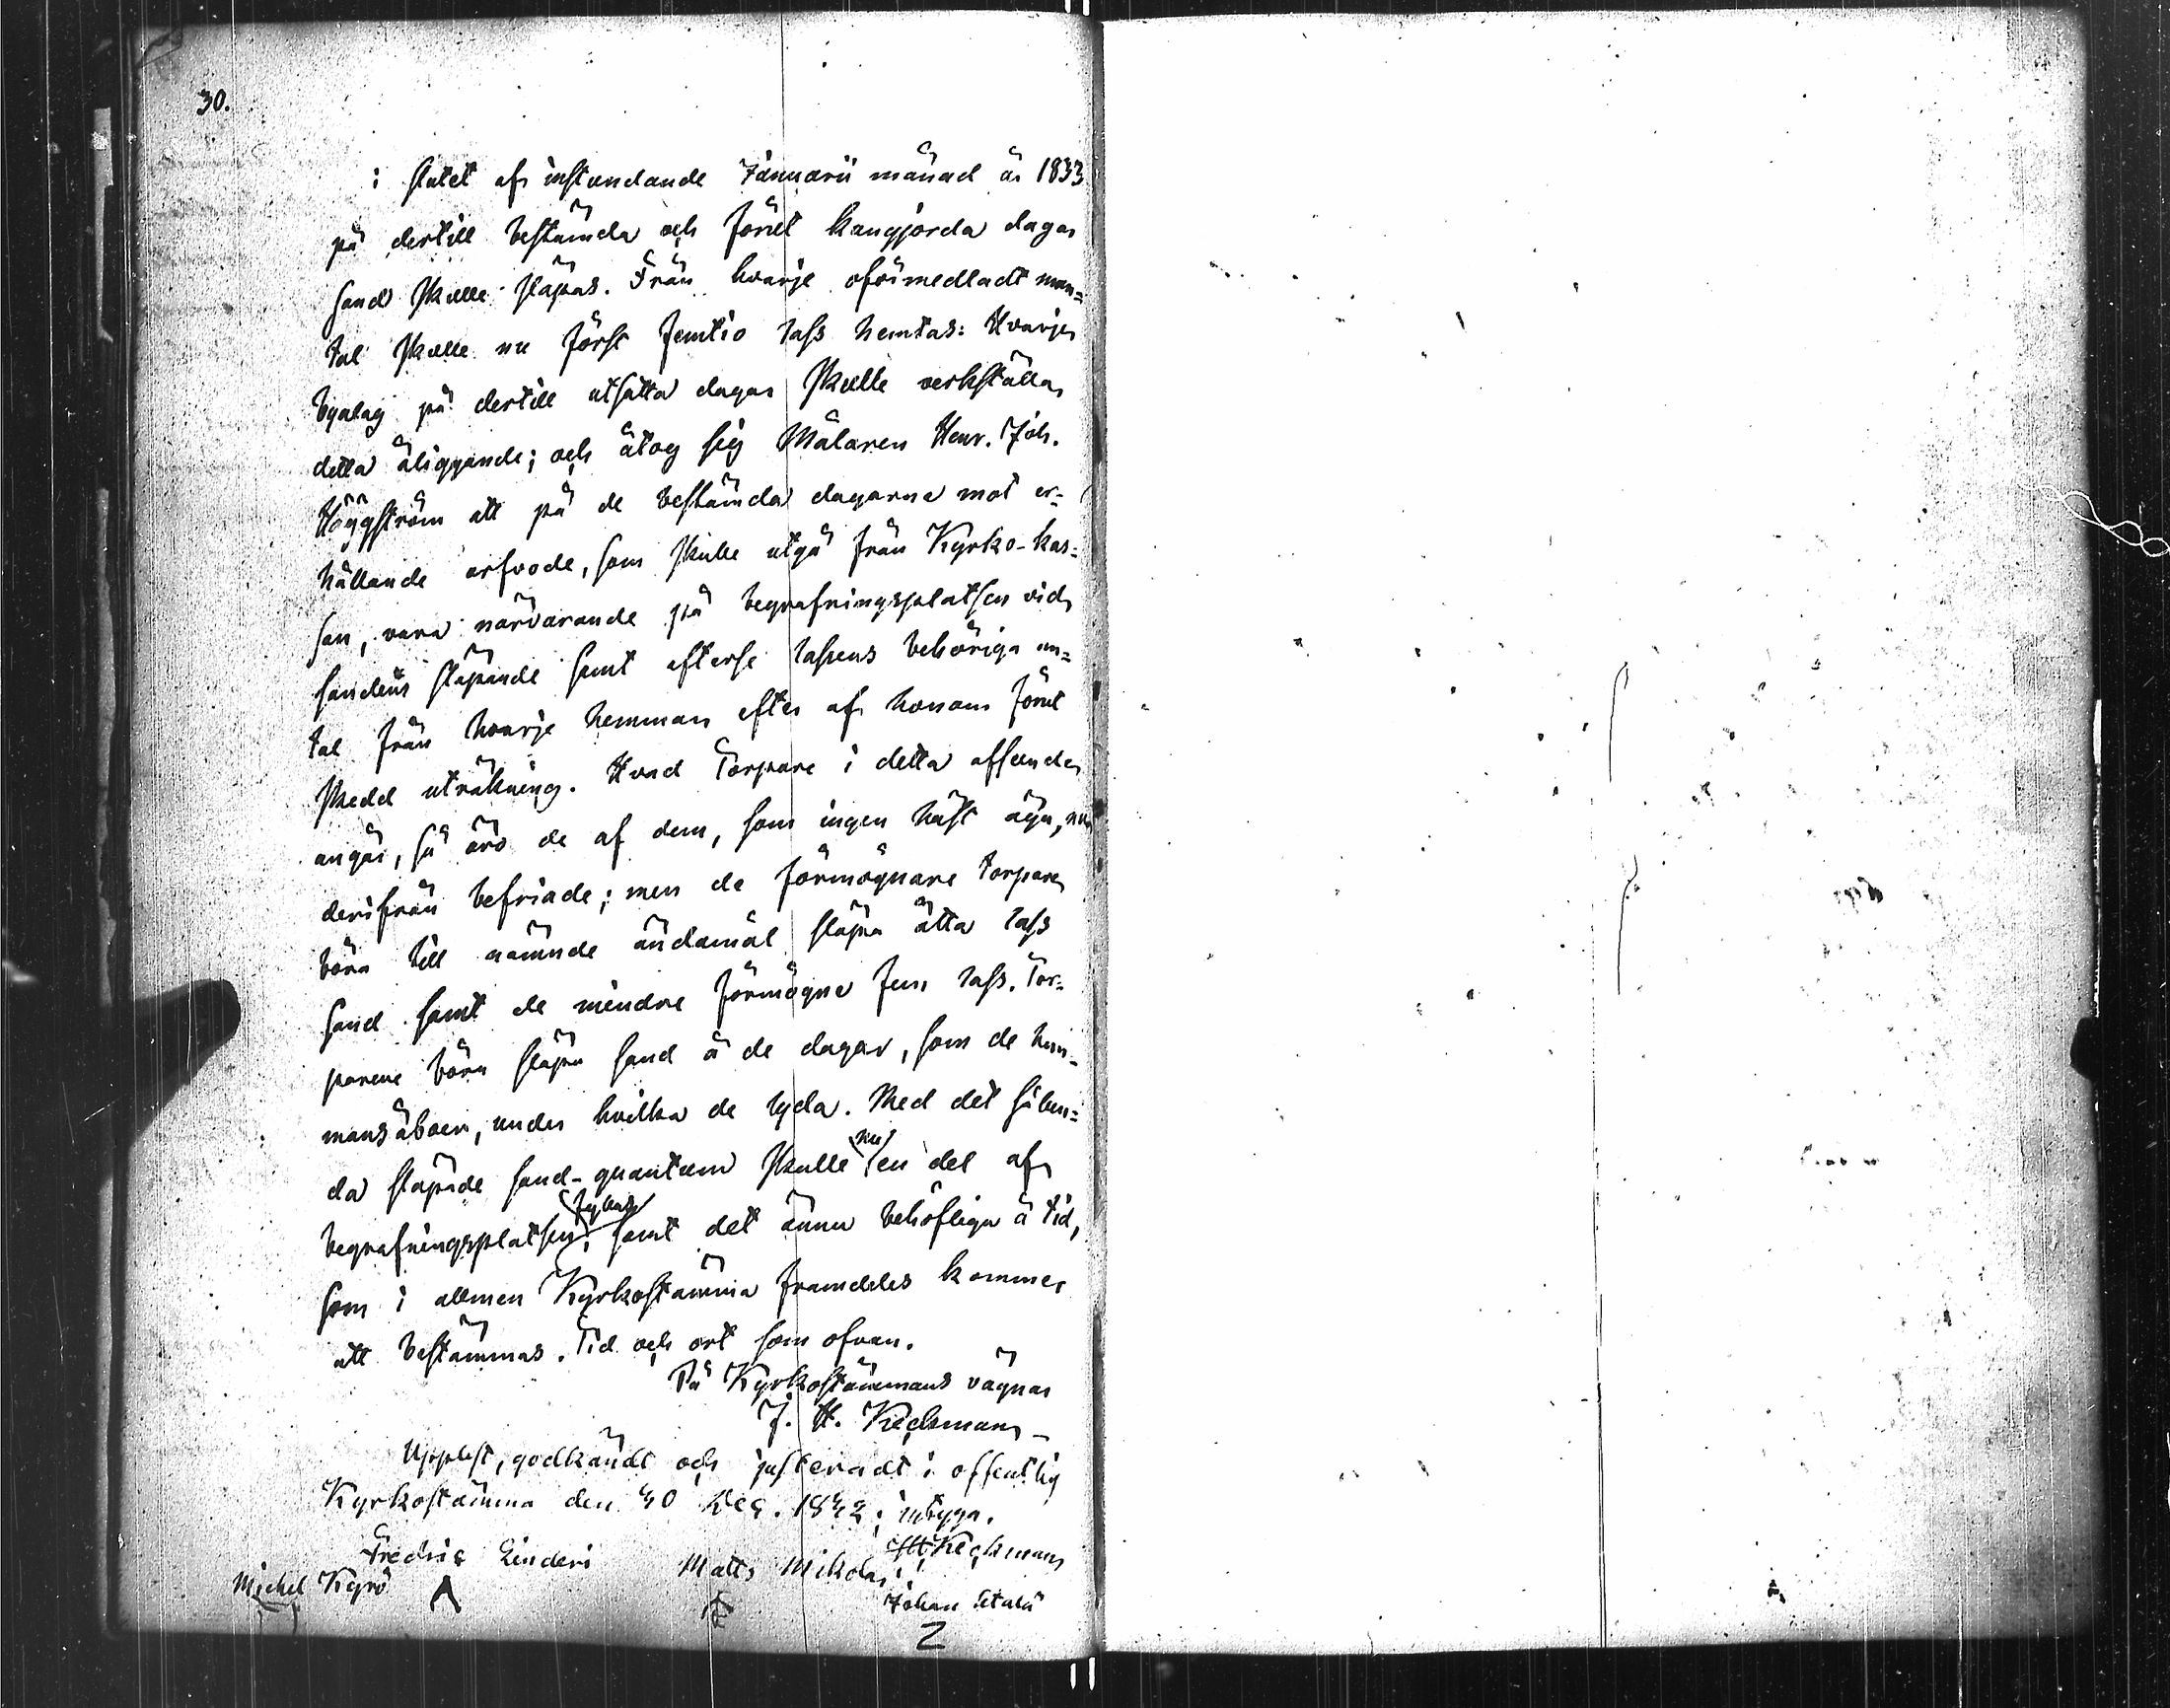 30.
i slutet af instundande Januarii månad år 1833
på dertill bestämda och förut kungjorda dagar
sand skulle släpas. Från hvarje oförmedladt man=
tal skulle nu först femtio lass hemtas: Hvarje
byalag på dertill utsatta dagar skulle verkställa
detta åliggande; och åtog sig Målaren Henr. Joh.
Häggström att på de bestämda dagarne mot er=
hållande arfvode, som skulle utgå från Kyrko-kas=
san, vara närvarande på begrafningsplatsen vid
sandens släpande samt efterse lassens behöriga an=
tal från hvarje hemman efter af honom förut
skedd uträkning. Hvad Torpare i detta afseende
angår, så äro de af dem, som ingen häst äga, nu
derifrån befriade; men de förmögnare torpare
böra till nämnde ändamål släpa åtta lass
sand samt de mindre förmögne fem lass. Tor=
parene böra släpa sand å de dagar, som de hem=
mansåboer, under hvilka de lyda. Med det sålun=
da släpade sand-quantum skulle nu en del af
begrafningsplatsen fyllas, samt det ännu behöfliga å tid,
som i allmen Kyrkostämma framdeles kommer
att bestämmas. Tid och ort som ofvan.
På Kyrkostämmans vägnar
J. H. Keckman
Upplest, godkändt och justeradt i offentlig
Kyrkostämma den 30 Dec. 1832; intyga.
JH Keckman
Fredric Linderi Matts Mikola
Michel Kyrö
Johan